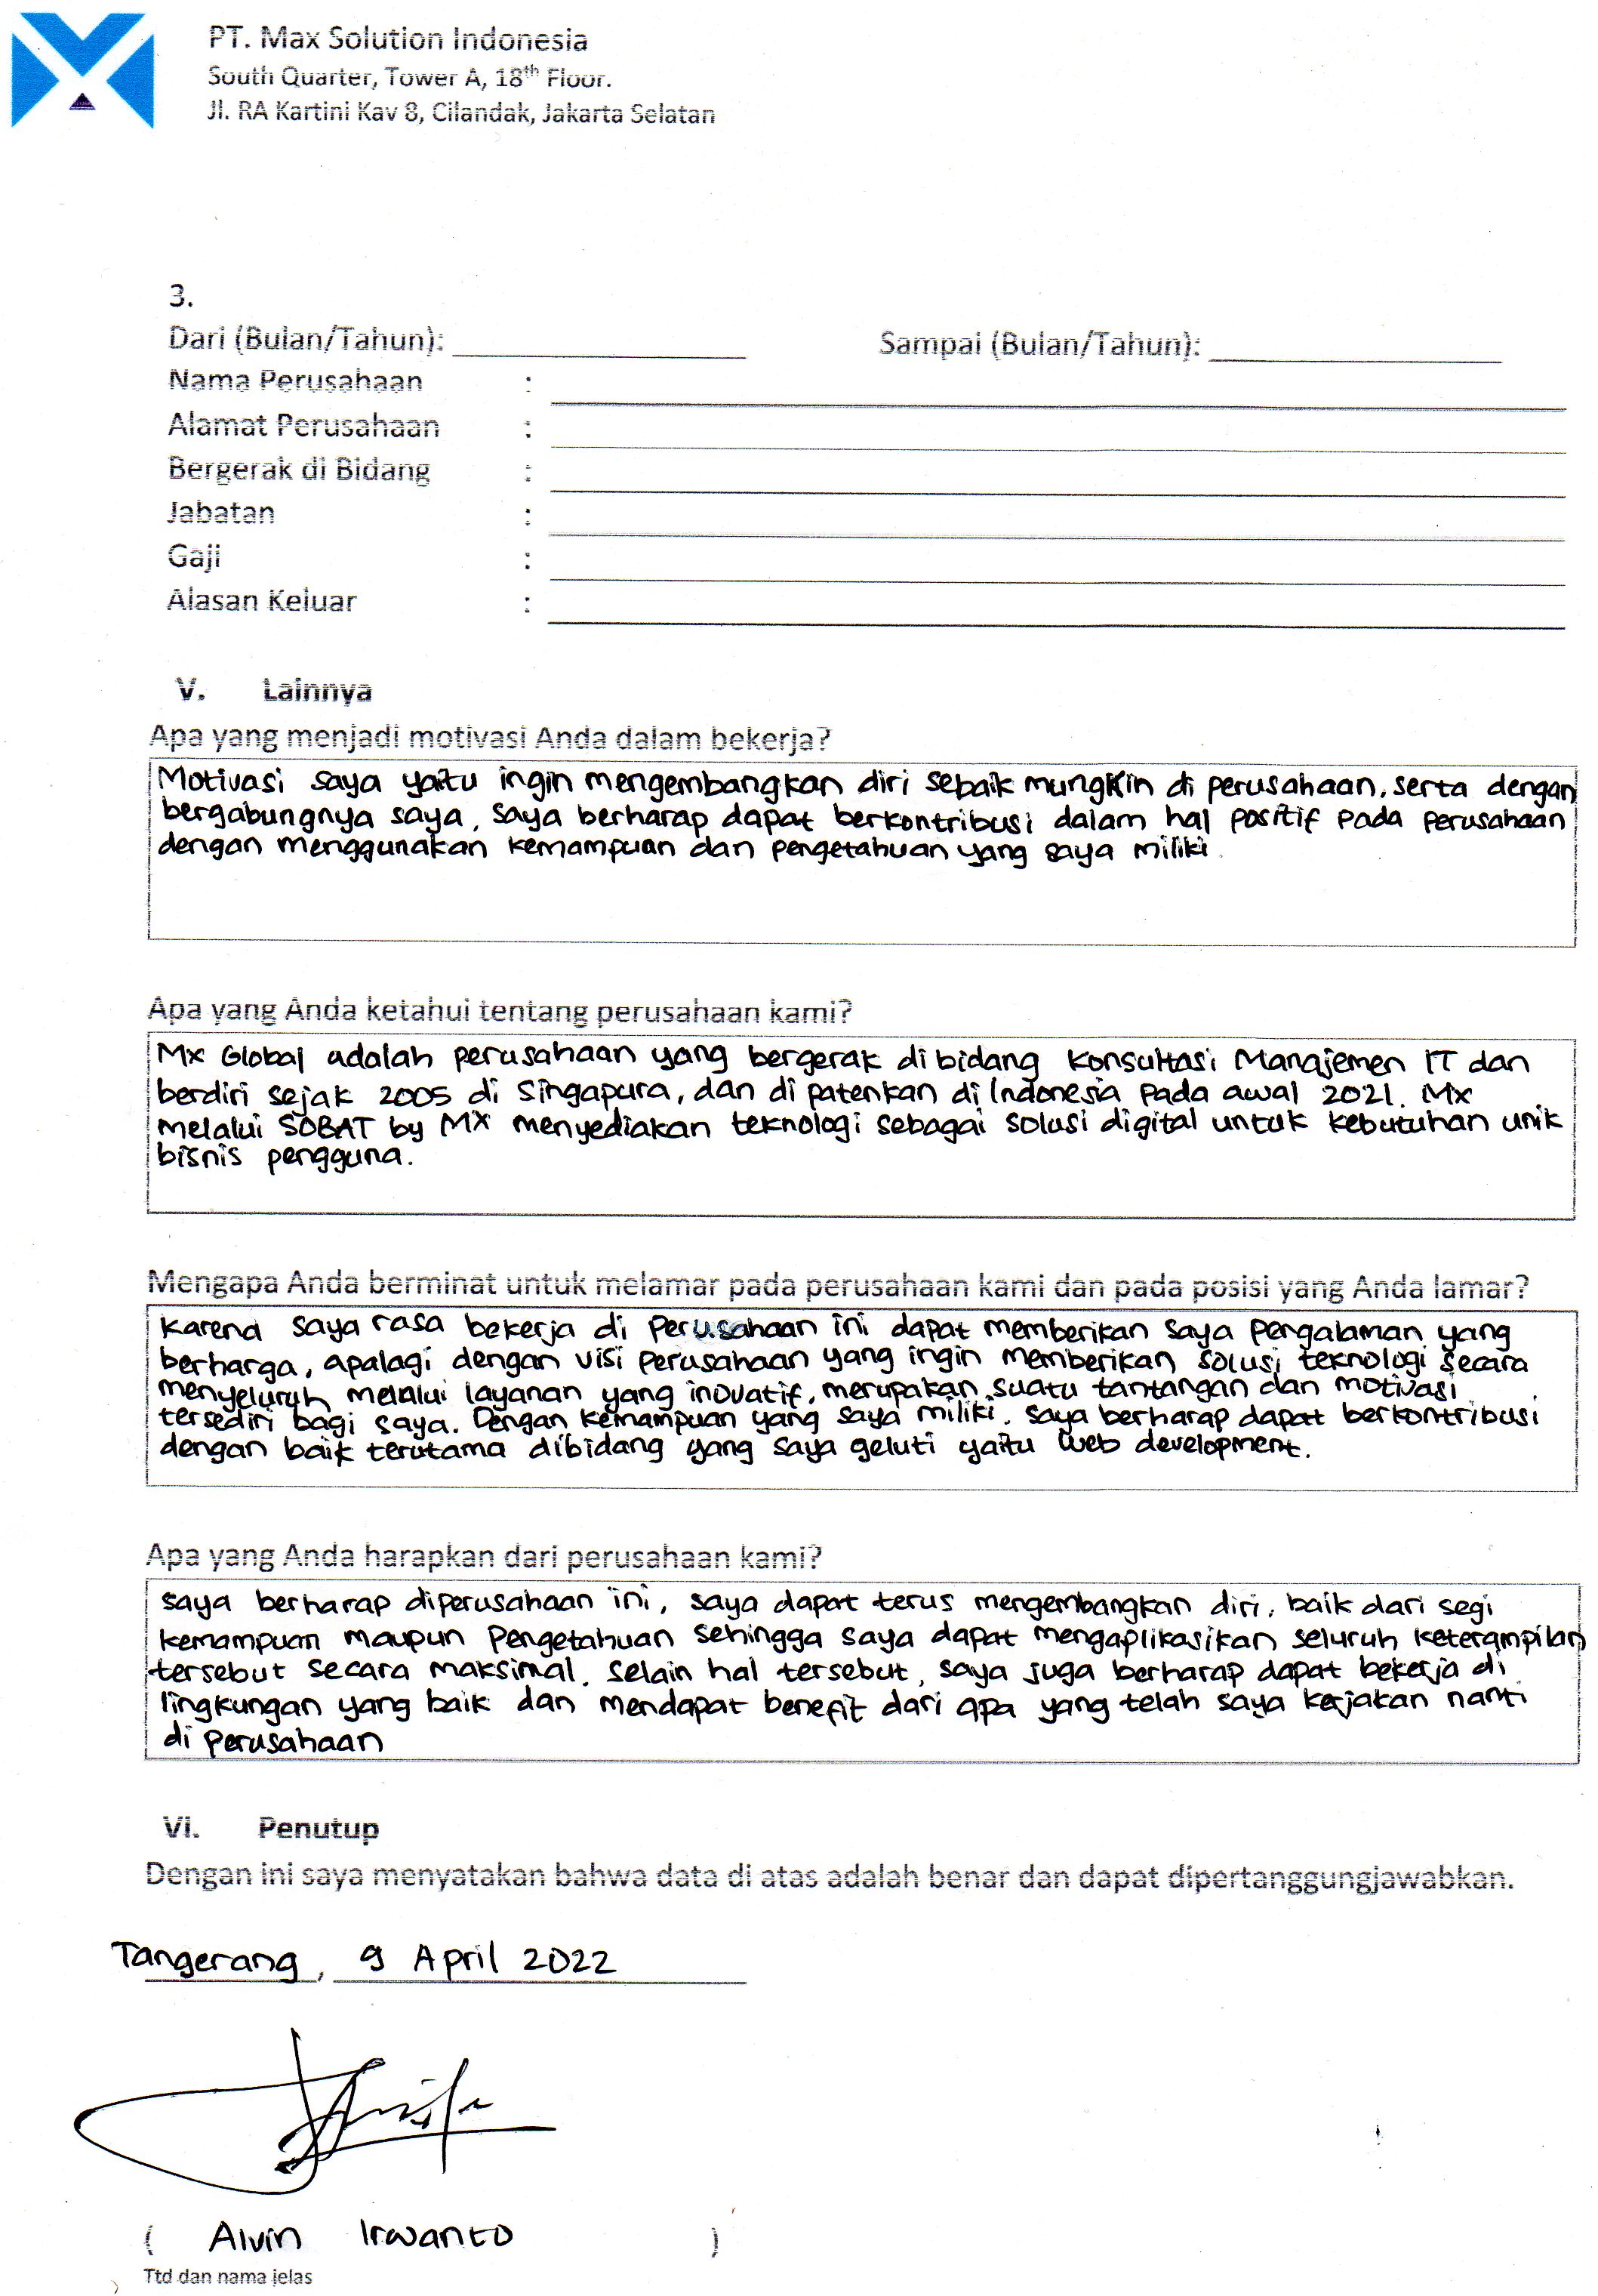 PT. Max Solution Indonesia
South Quarter, Tower A, 18th Floor.
Jl. RA Kartini Kav 8, Cilandak, Jakarta Selatan
3.
Dari (Bulan/Tahun): Sampai (Bulan/Tahun):
Nama Perusahaan :
Alamat Perusahaan :
Bergerak di Bidang :
Jabatan :
Gaji :
Alasan Keluar :
V. Lainnya
Apa yang menjadi motivasi Anda dalam bekerja?
Motivasi saya yaitu ingin mengembangkan diri sebaik mungkin di perusahaan, serta dengan
bergabungnya saya, saya berharap dapat berkontribusi dalam hal positif pada perusahaan
dengan menggunakan kemampuan dan pengetahuan yang saya miliki.
Apa yang Anda ketahui tentang perusahaan kami?
Mx Global adalah perusahaan yang bergerak di bidang Konsultasi Manajemen IT dan
berdiri sejak 2005 di Singapura, dan di patenkan di Indonesia pada awal 2021. Mx
melalui SOBAT by MX menyediakan teknologi sebagai solusi digital untuk kebutuhan unik
bisnis pengguna.
Mengapa Anda berminat untuk melamar pada perusahaan kami dan pada posisi yang Anda lamar?
Karena saya rasa bekerja di perusahaan ini dapat memberikan saya pengalaman yang
berharga, apalagi dengan visi perusahaan yang ingin memberikan solusi teknologi secara
menyeluruh melalui layanan yang inovatif, merupakan suatu tantangan dan motivasi
tersediri bagi saya. Dengan kemampuan yang saya miliki, saya berharap dapat berkontribusi
dengan baik terutama dibidang yang saya geluti yaitu web development.
Apa yang Anda harapkan dari perusahaan kami?
saya berharap diperusahaan ini, saya dapat terus mengembangkan diri, baik dari segi
kemampuan maupun pengetahuan sehingga saya dapat mengaplikasikan seluruh keterampilan
tersebut secara maksimal. Selain hal tersebut, saya juga berharap dapat bekerja di
lingkungan yang baik dan mendapat benefit dari apa yang telah saya kerjakan nanti
di perusahaan
VI. Penutup
Dengan ini saya menyatakan bahwa data di atas adalah benar dan dapat dipertanggungjawabkan.
Tangerang, 9 April 2022
( Alvin Irwanto )
Ttd dan nama jelas